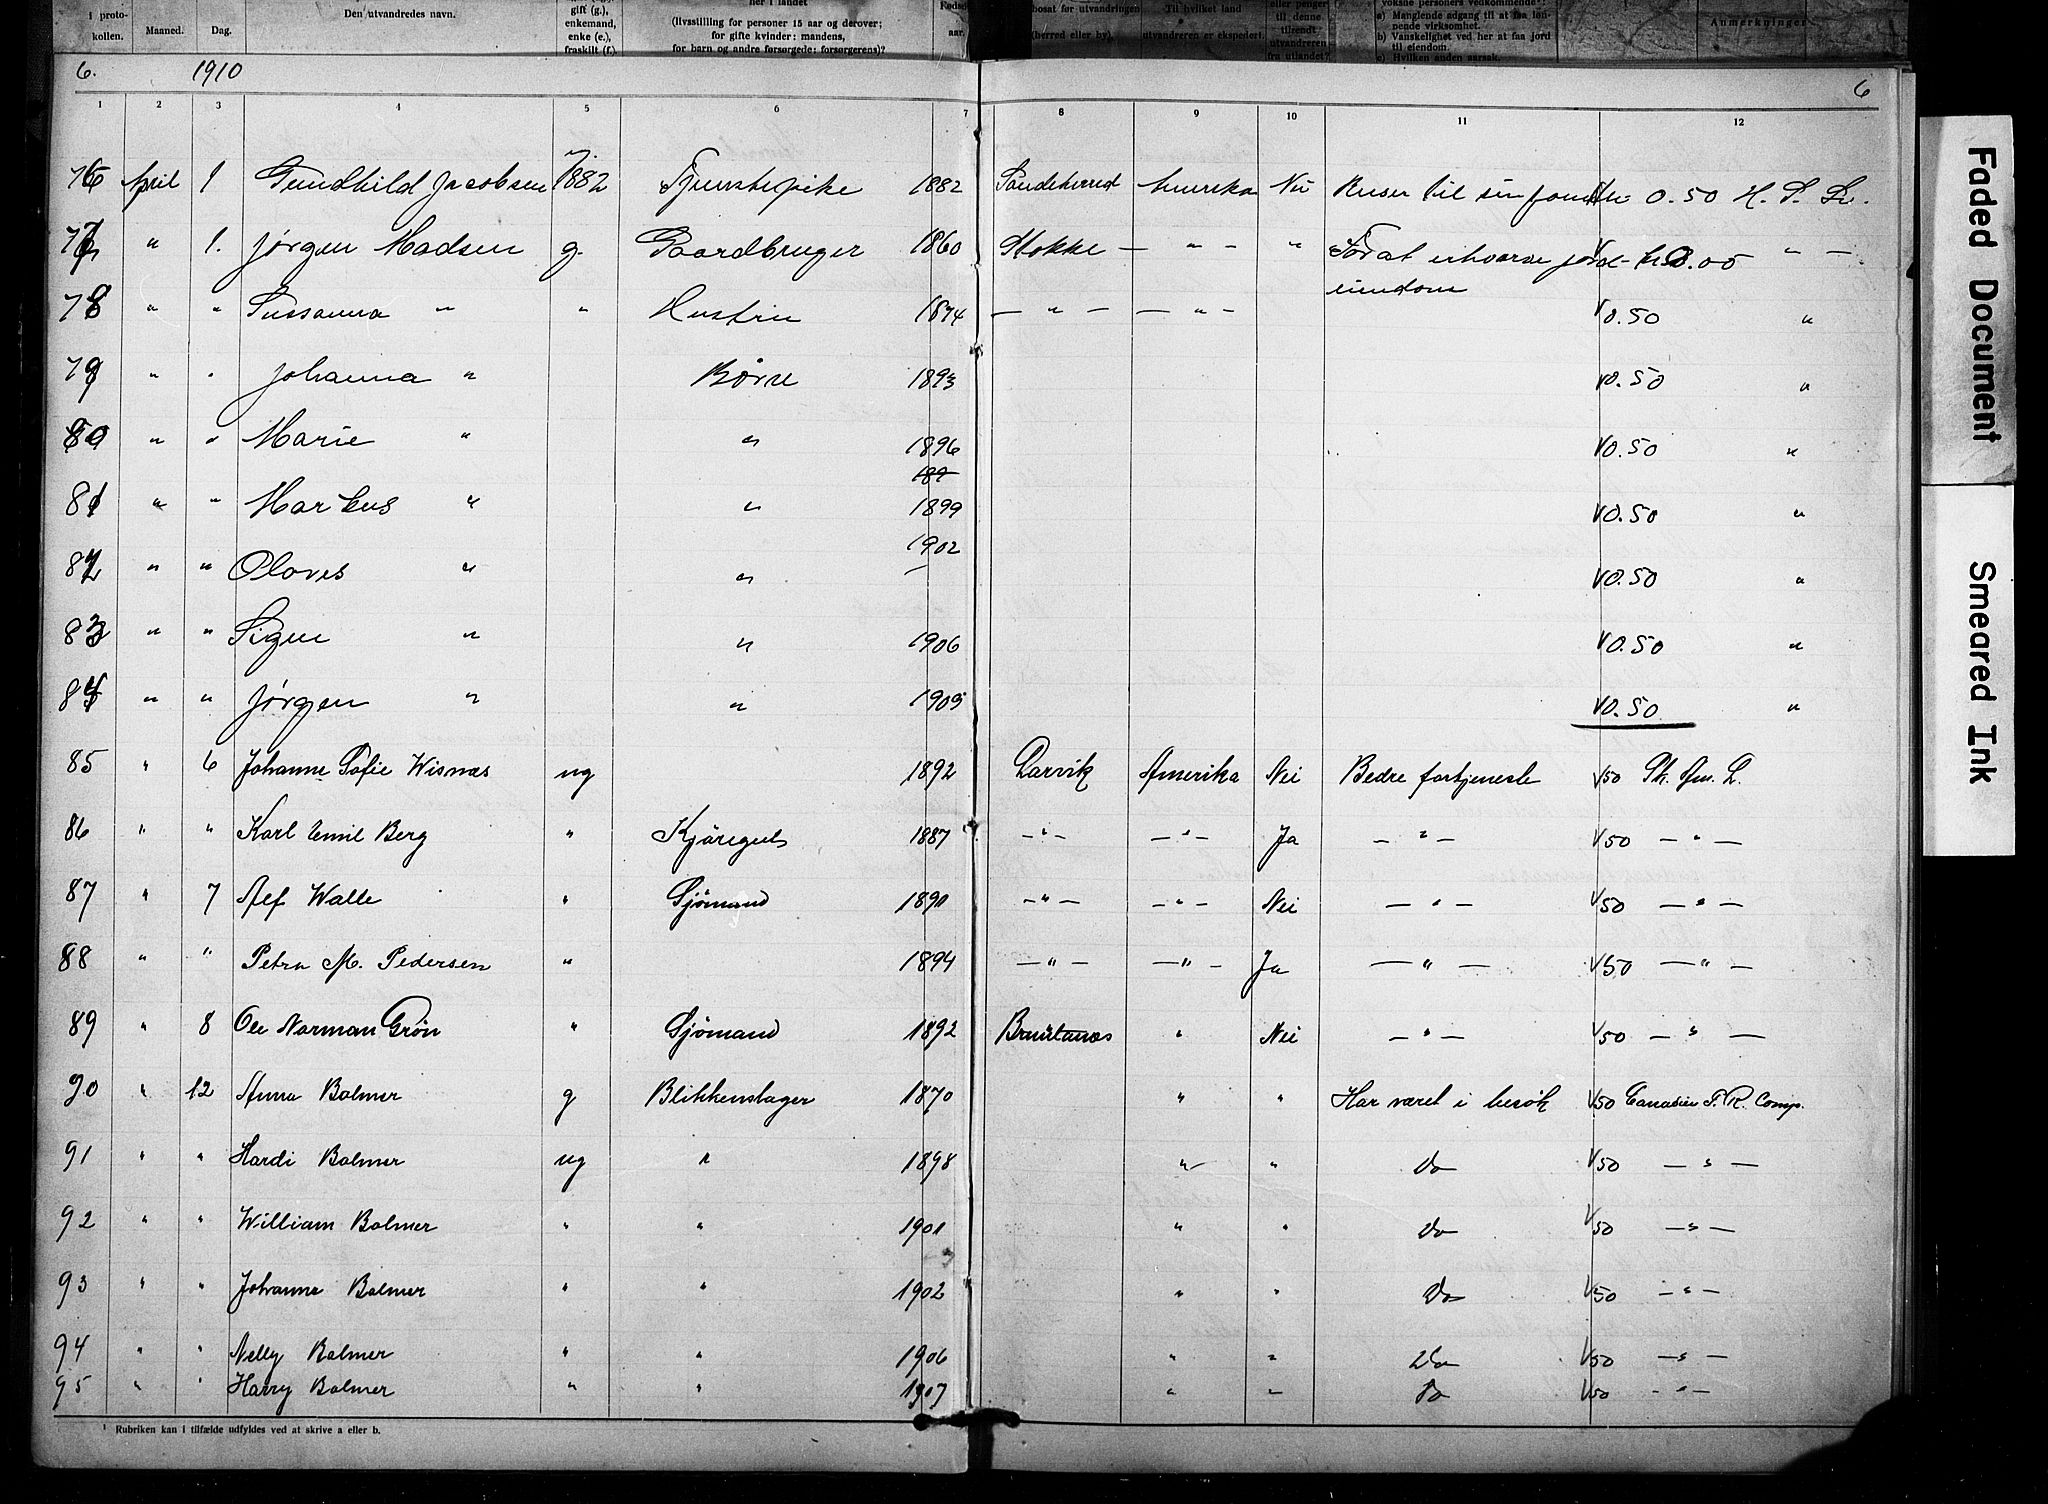 i proto-
kollen.
Maaned.
Dag.
Den utvandredes navn.
gift (g.),
enkemand,
enke (e.),
fraskilt (f.)
her i landet
(livsstilling for personer 15 aar og derover;
for gifte kvinder: mandens,
for barn og andre forsørgede: forsørgerens)?
Fødsels-
aar.
bosat før utvandringen
(herred eller by).
Til hvilket land
utvandreren er ekspedert.
eller penger
til denne
tilsendt
utvandreren
fra utlandet?
voksne personers vedkommende¹:
a) Manglende adgang til at faa løn-
nende virksomhet.
b) Vanskelighet ved her at faa jord
til eiendom.
c) Hvilken anden aarsak.
Anmerkninger
6. 1910 6
1 2 3 4 5 6 7 8 9 10 11 12
76 April 1 Gundhild Jacobsen 1882 Tjenstepike 1882 Sandeherred Amerika Nei Reiser til sin familie 0.50 H. S. L.
77 " 1. Jørgen Madsen g. Gaardbruger 1860 Stokke — " — " For at erhverve jord- " —
eiendom
78 " " Sussanna " " Hustru 1874 — " — — " — 0.50 "
79 " " Johanna " Børn 1893 0.50 "
80 " " Marie " " 1896 0.50 "
189
81 " " Markus " " 1899 0.50 "
1902
82 " " Olaves " " 0.50 "
83 " " Signe " " 1906 0.50 "
84 " " Jørgen " " 1909 0.50 "
85 " 6 Johanne Sofie Wisnæs ug 1892 Larvik Amerika Nei Bedre fortjeneste 1/50 Sk. Am. L.
86 " " Karl Emil Berg " Kjøregut 1887 — " — — " — Ja — " — 1/50 — " —
87 " 7 Alf Walle " Sjömand 1890 — " — — " — Nei — " — 1/50 — " —
88 " " Petra M. Pedersen " 1894 — " — — " — Ja — " — 1/50 — " —
89 " 8 Ole Norman Grön " Sjömand 1892 Brunlanæs " Nei — " — 1/50 — " —
90 " 12 Anna Bolmer g Blikkenslager 1870 " " Har været i besök 1/50 Canadien P. R. Comp.
91 " " Hardi Bolmer ug " 1898 " " Do 1/50 — " —
92 " " William Bolmer " " 1901 " " Do 1/50 — " —
93 " " Johanne Bolmer " " 1902 " " Do 1/50 — " —
94 " " Nelly Bolmer " " 1906 " " Do 1/50 — " —
95 " " Harry Bolmer " " 1907 " " Do 1/50 — " —
¹ Rubriken kan i tilfælde udfyldes ved at skrive a eller b.
Faded Document
Smeared Ink